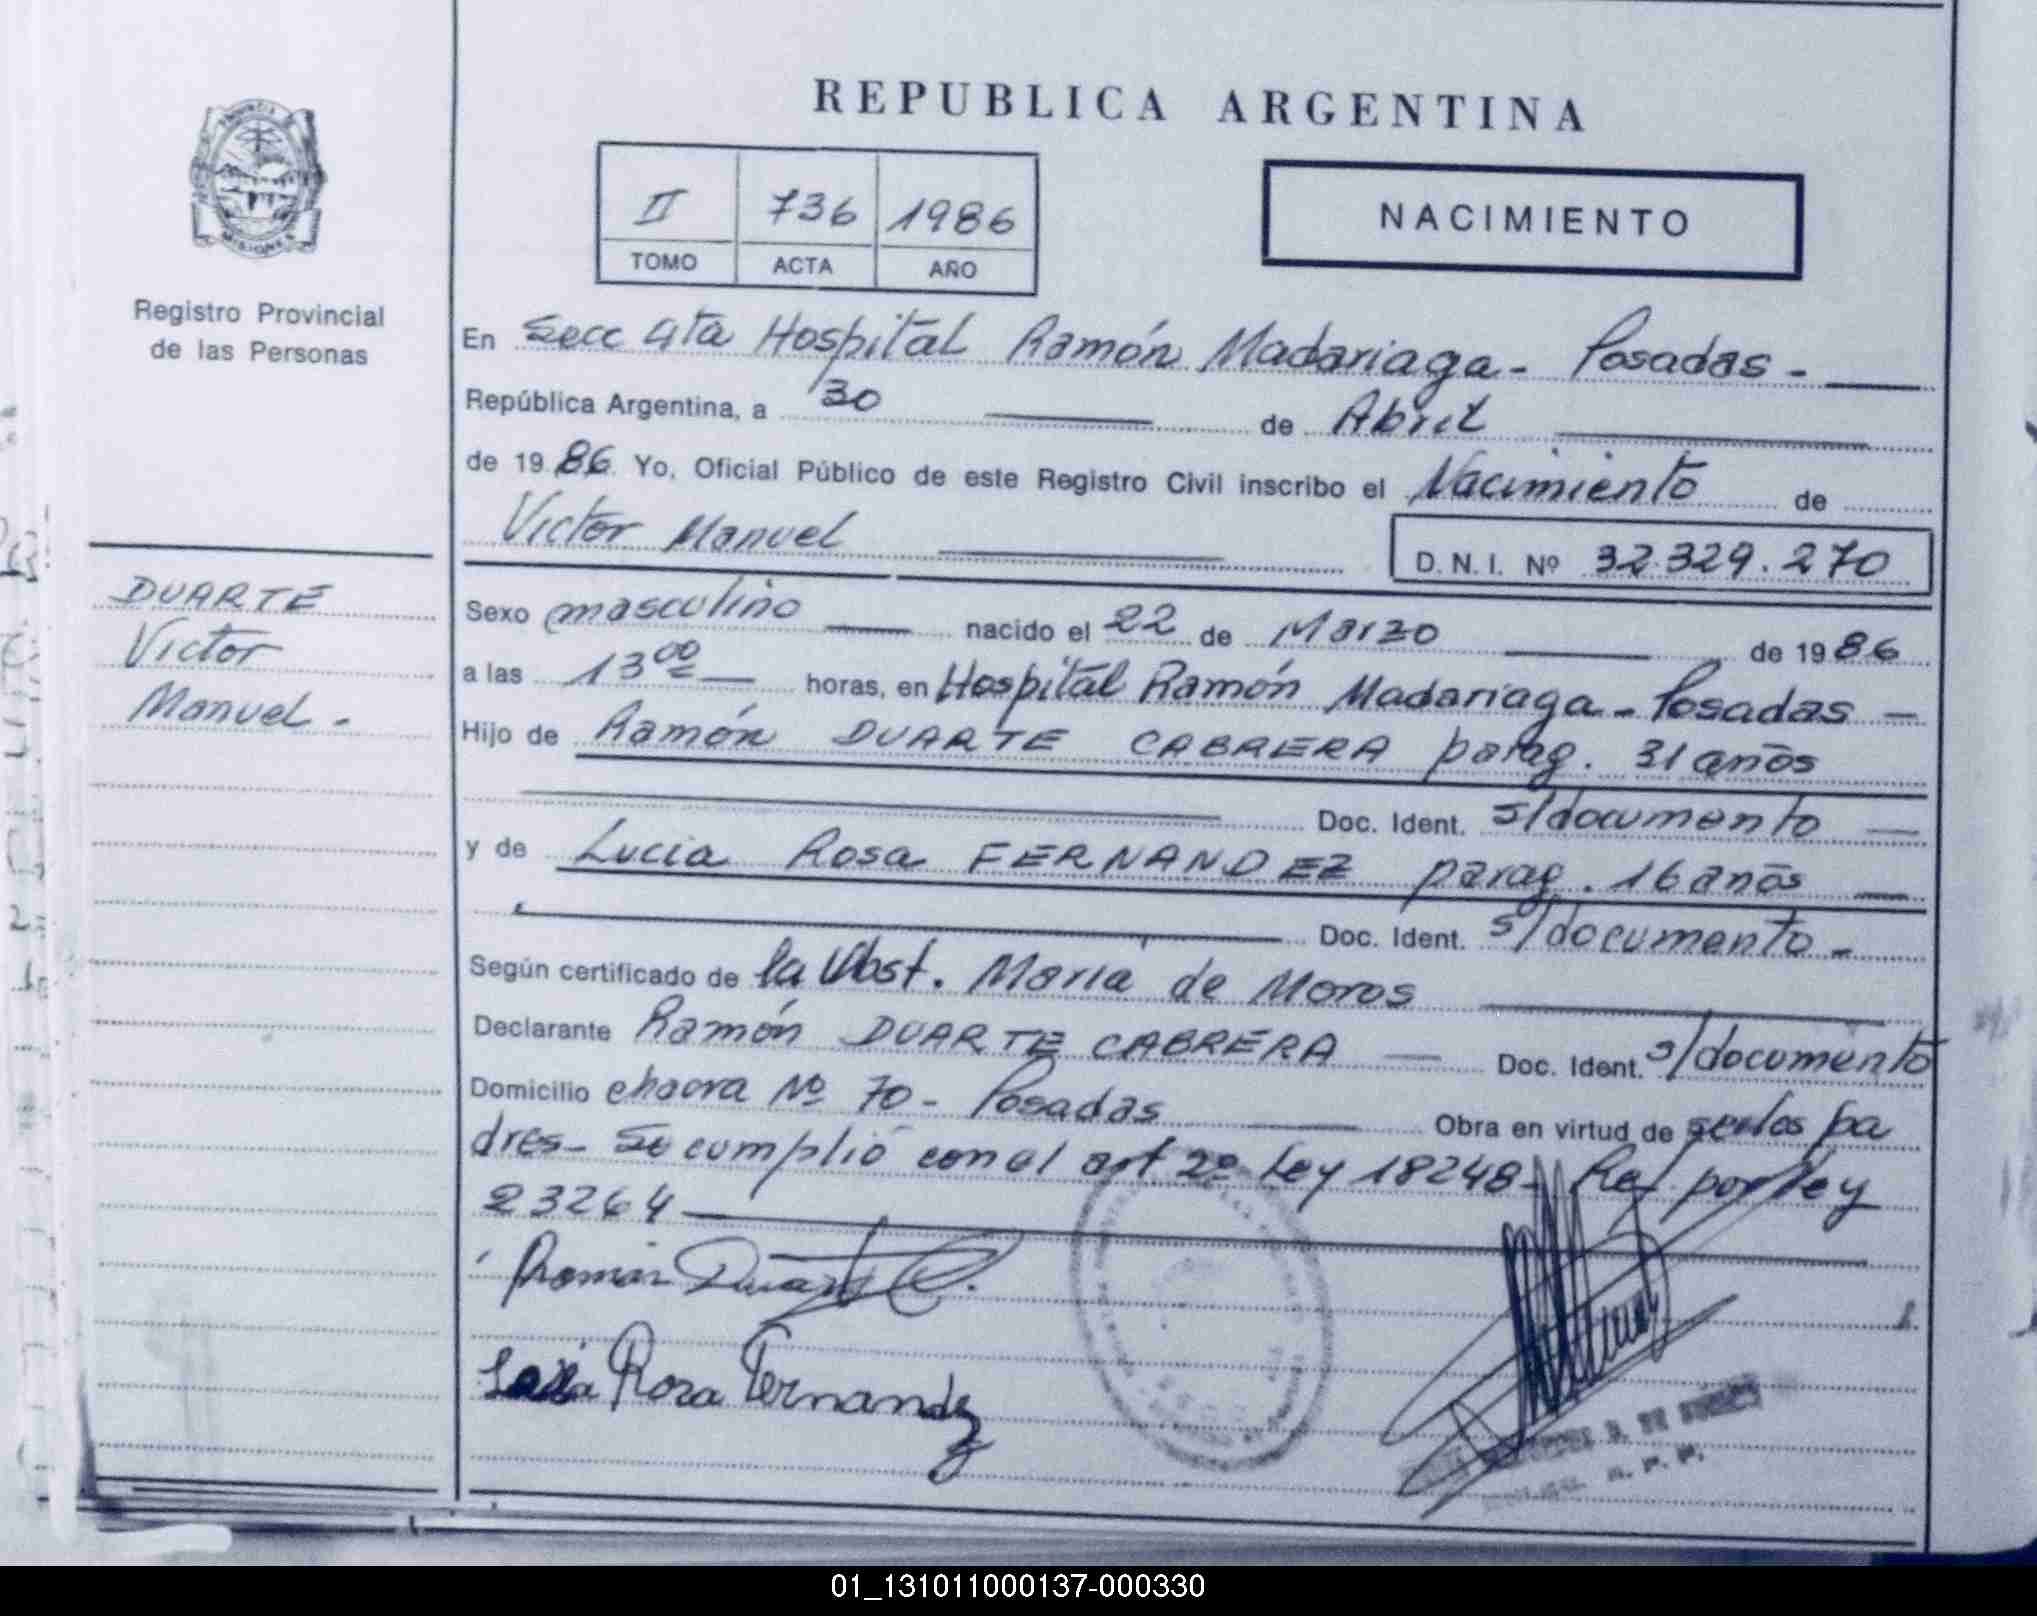 REPUBLICA ARGENTINA
II 736 1986
TOMO ACTA AÑO
NACIMIENTO
PROVINCIA DE
MISIONES
Registro Provincial
de las Personas
DUARTE
Victor
Manuel.-
En Secc 4ta Hospital Ramón Madariaga - Posadas -
República Argentina, a 30 de Abril
de 1986. Yo, Oficial Público de este Registro Civil inscribo el Nacimiento de
Victor Manuel D. N. I. Nº 32.329.270
Sexo masculino nacido el 22 de Marzo de 1986
a las 13 00 horas, en Hospital Ramón Madariaga - Posadas -
Hijo de Ramón DUARTE CABRERA parag. 31 años
Doc. Ident. s/documento
y de Lucia Rosa FERNANDEZ parag. 16 años
Doc. Ident. s/documento -
Según certificado de la Obst. Maria de Moros
Declarante Ramón DUARTE CABRERA Doc. Ident. s/documento
Domicilio chacra Nº 70 - Posadas Obra en virtud de ser los pa
dres - Se cumplió con el art 2º Ley 18248 - Ref. por Ley
23264
Ramón Duarte C.
Lucia Rosa Fernandez
R. P. P.
01_131011000137-000330